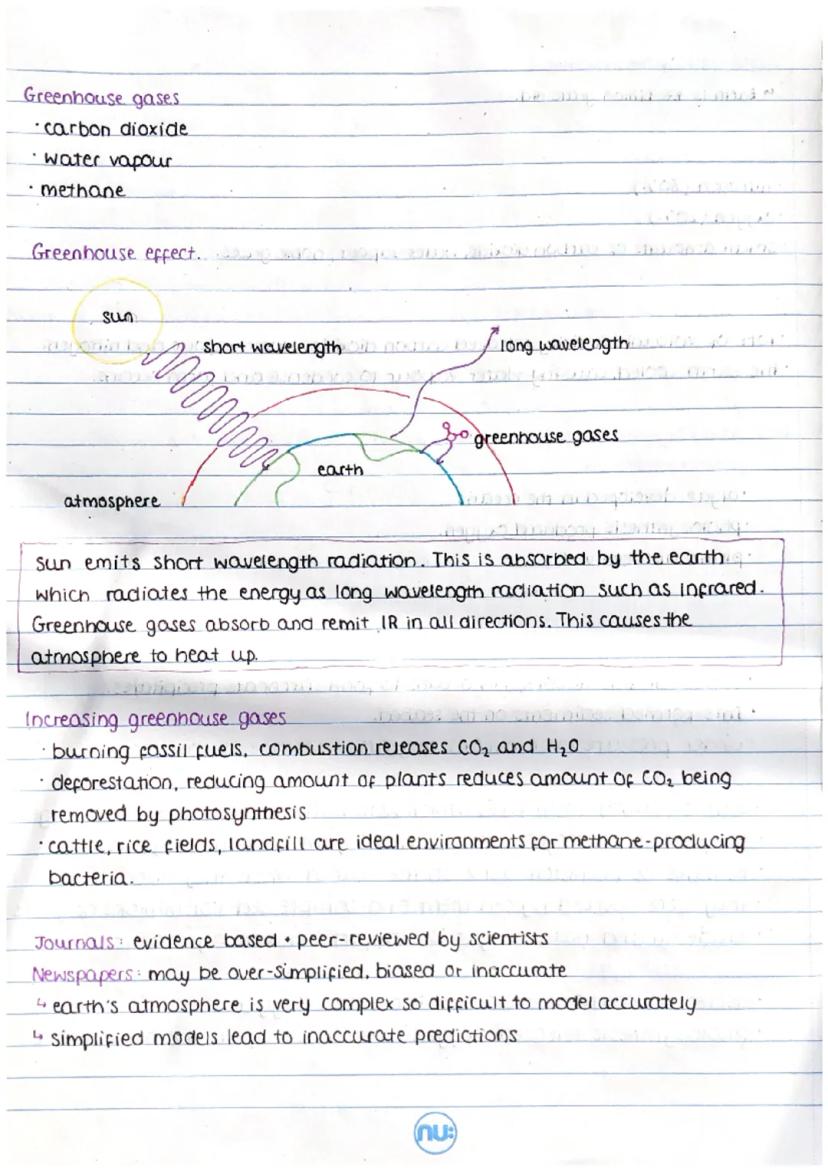 Greenhouse gases
· carbon dioxide
· water vapour
· methane
Greenhouse effect.
sun
short wavelength
long wavelength
greenhouse gases
earth
atmosphere
Sun emits short wavelength radiation. This is absorbed by the earth
which radiates the energy as long wavelength radiation such as infrared.
Greenhouse gases absorb and remit IR in all directions. This causes the
atmosphere to heat up.
Increasing greenhouse gases
· burning fossil fuels, combustion releases CO₂ and H₂O
· deforestation, reducing amount of plants reduces amount of CO₂ being
removed by photosynthesis
· cattle, rice fields, landfill are ideal environments for methane-producing
bacteria.
Journals: evidence based + peer-reviewed by scientists
Newspapers: may be over-simplified, biased or inaccurate
↳ earth's atmosphere is very complex so difficult to model accurately
↳ simplified models lead to inaccurate predictions
nu: